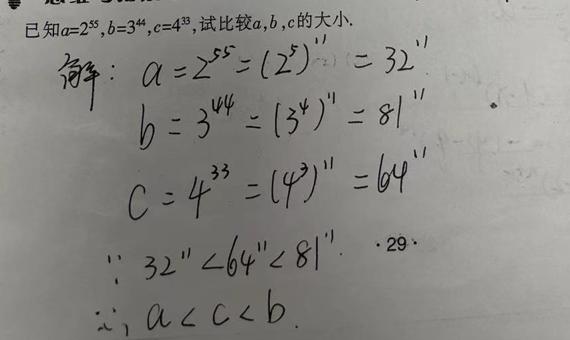 已知a=2⁵⁵,b=3⁴⁴,c=4³³,试比较a,b,c的大小.
解: a=2⁵⁵=(2⁵)¹¹=32¹¹
b=3⁴⁴=(3⁴)¹¹=81¹¹
C=4³³=(4³)¹¹=64¹¹
∵ 32¹¹<64¹¹<81¹¹.
·29·
∴, a<c<b.